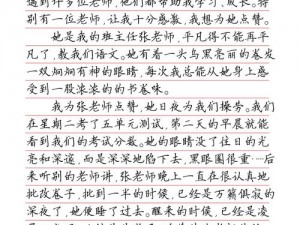 遇到许多位老师,他们都帮助我学习,成长。特
别有一位老师,让我十分感激,我想为她点赞。
她是我的班主任张老师,平凡得不能再平
凡了,教我们语文。她有一头乌黑亮丽的卷发
一双炯炯有神的眼睛,每次我总能从她身上感
受到一股浓浓的的书卷味。
我为张老师点赞,她日夜为我们操劳。我们
在星期二考了五单元测试,第二天的早晨就能
看到我们的考试分数。她的眼睛没了往日的光
亮和深邃,而是深深地陷下去,黑眼圈很重…后
来听别的老师讲,张老师晚上一直在很认真地
批改卷子,批到一半的时候,已经是万籁俱寂的
深夜了,她便睡了过去。醒来的时候,已经是凌